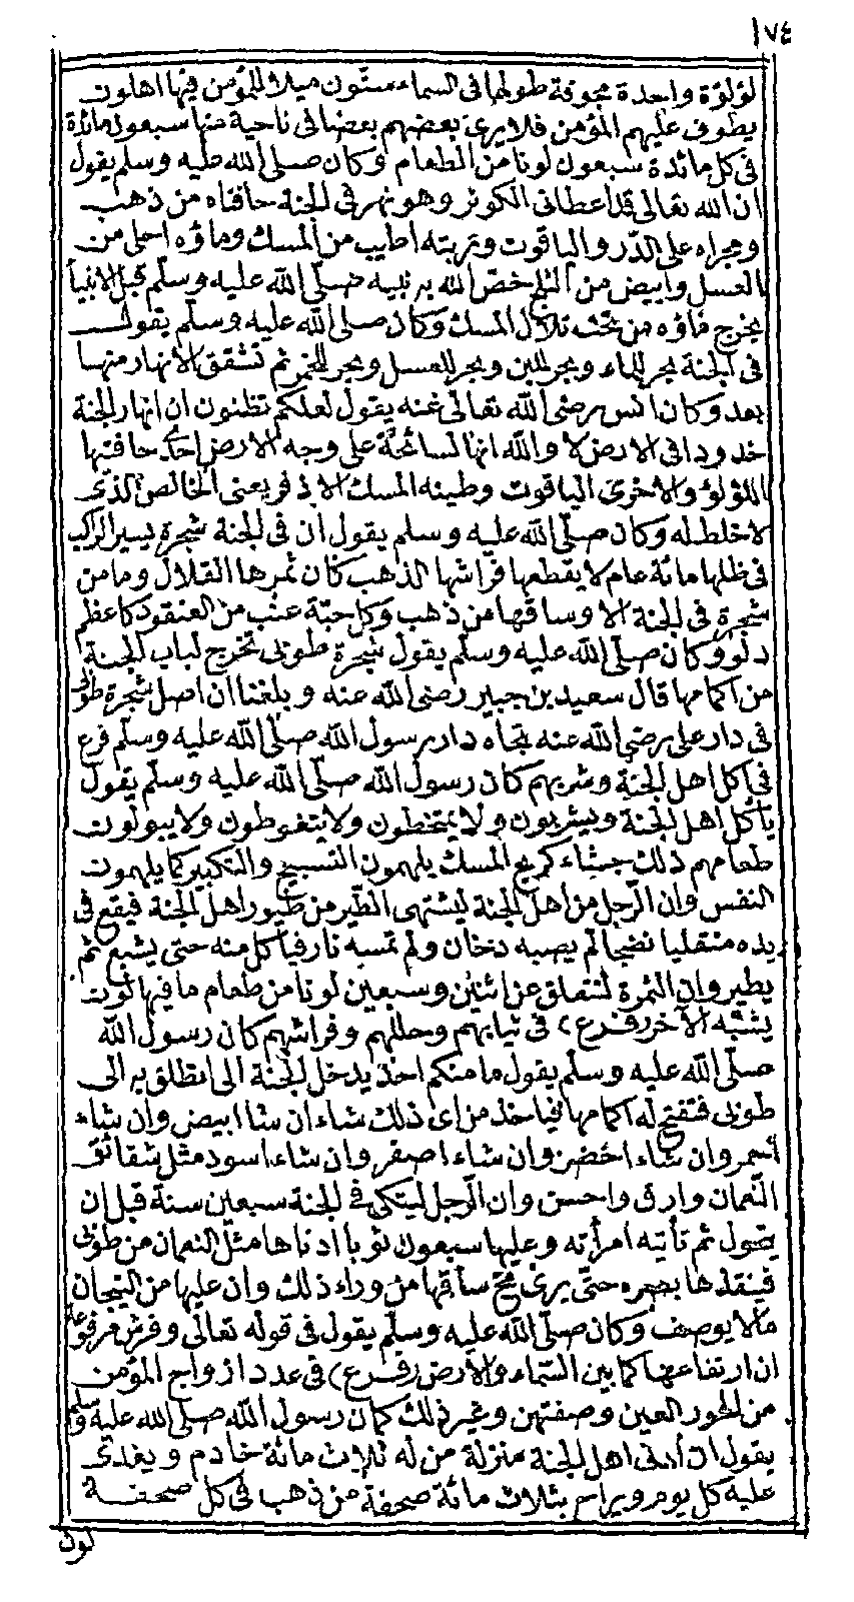 ١٧٤
لؤلؤة واحدة مجوفة طولها فى السماء ستون ميلا للمؤمن فيها اهلون
يطوف عليهم المؤمن فلا يرى بعضهم بعضا فى ناحية منها سبعون مائدة
فى كل مائدة سبعون لونا من الطعام وكان صلى الله عليه وسلم يقول
ان الله تعالى قد اعطانى الكوثر وهو نهر فى الجنة حافتاه من ذهب
ومجراه على الدر والياقوت وتربته اطيب من المسك وماؤه احلى من
العسل وابيض من الثلج خص الله به نبيه صلى الله عليه وسلم قبل الانبيأ
يخرج ماؤه من تحت تلال المسك وكان صلى الله عليه وسلم يقول
فى الجنة بحر للماء وبحر للبن وبحر للعسل وبحر للخمر ثم تشقق الانهار منها
بعد وكان انس رضى الله تعالى عنه يقول لعلكم تظنون ان انهار الجنة
خدود فى الارض لا والله انها لسائحة على وجه الارض احدى حافتيها
اللؤلؤ والاخرى الياقوت وطينه المسك الاذفر يعنى الخالص الذى
لا خلط له وكان صلى الله عليه وسلم يقول ان فى الجنة شجرة يسير الراكب
فى ظلها مائة عام لا يقطعها فراشها الذهب كان ثمرها القلال وما من
شجرة فى الجنة الا وساقها من ذهب وكل حبة عنب من العنقود كاعظم
دلو وكان صلى الله عليه وسلم يقول شجرة طوبى تخرج لباب الجنة
من اكمامها قال سعيد بن جبير رضى الله عنه وبلغنا ان اصل شجرة طوبى
فى دار على رضى الله عنه تجاه دار رسول الله صلى الله عليه وسلم فرع
فى اكل اهل الجنة وشربهم كان رسول الله صلى الله عليه وسلم يقول
يأكل اهل الجنة ويشربون ولا يمتخطون ولا يتغوطون ولا يبولون
طعامهم ذلك جشاء كريح المسك يلهمون التسبيح والتكبير كما يلهمون
النفس وان الرجل من اهل الجنة ليشتهى الطير من طيور اهل الجنة فيقع فى
يده منقليا نضيجا لم يصبه دخان ولم تمسه نار فيأكل منه حتى يشبع ثم
يطير وان الثمرة لتنفلق عن اثنين وسبعين لونا من طعام ما فيها لون
يشبه الآخر (فرع) فى ثيابهم وحللهم وفراشهم كان رسول الله
صلى الله عليه وسلم يقول ما منكم احد يدخل الجنة الا انطلق به الى
طوبى فتفتح له اكمامها فياخذ من اى ذلك شاء ان شا ابيض وان شاء
احمر وان شاء اخضر وان شاء اصفر وان شاء اسود مثل شقائق
النعمان وارق واحسن وان الرجل ليتكى فى الجنة سبعين سنة قبل ان
يتحول ثم تأتيه امرأته وعليها سبعون ثوبا ادناها مثل النعمان من طوبى
فينفذها بصره حتى يرى مخ ساقها من وراء ذلك وان عليها من التيجان
ما لا يوصف وكان صلى الله عليه وسلم يقول فى قوله تعالى وفرش مرفوعة
ان ارتفاعها كما بين السماء والارض (فرع) فى عدد ازواج المؤمن
من الحور العين وصفتهن وغير ذلك كان رسول الله صلى الله عليه وسلم
يقول ان أدنى اهل الجنة منزلة من له ثلاث مائة خادم ويغدى
عليه كل يوم ويراح بثلاث مائة صحفة من ذهب فى كل صحفة
لون